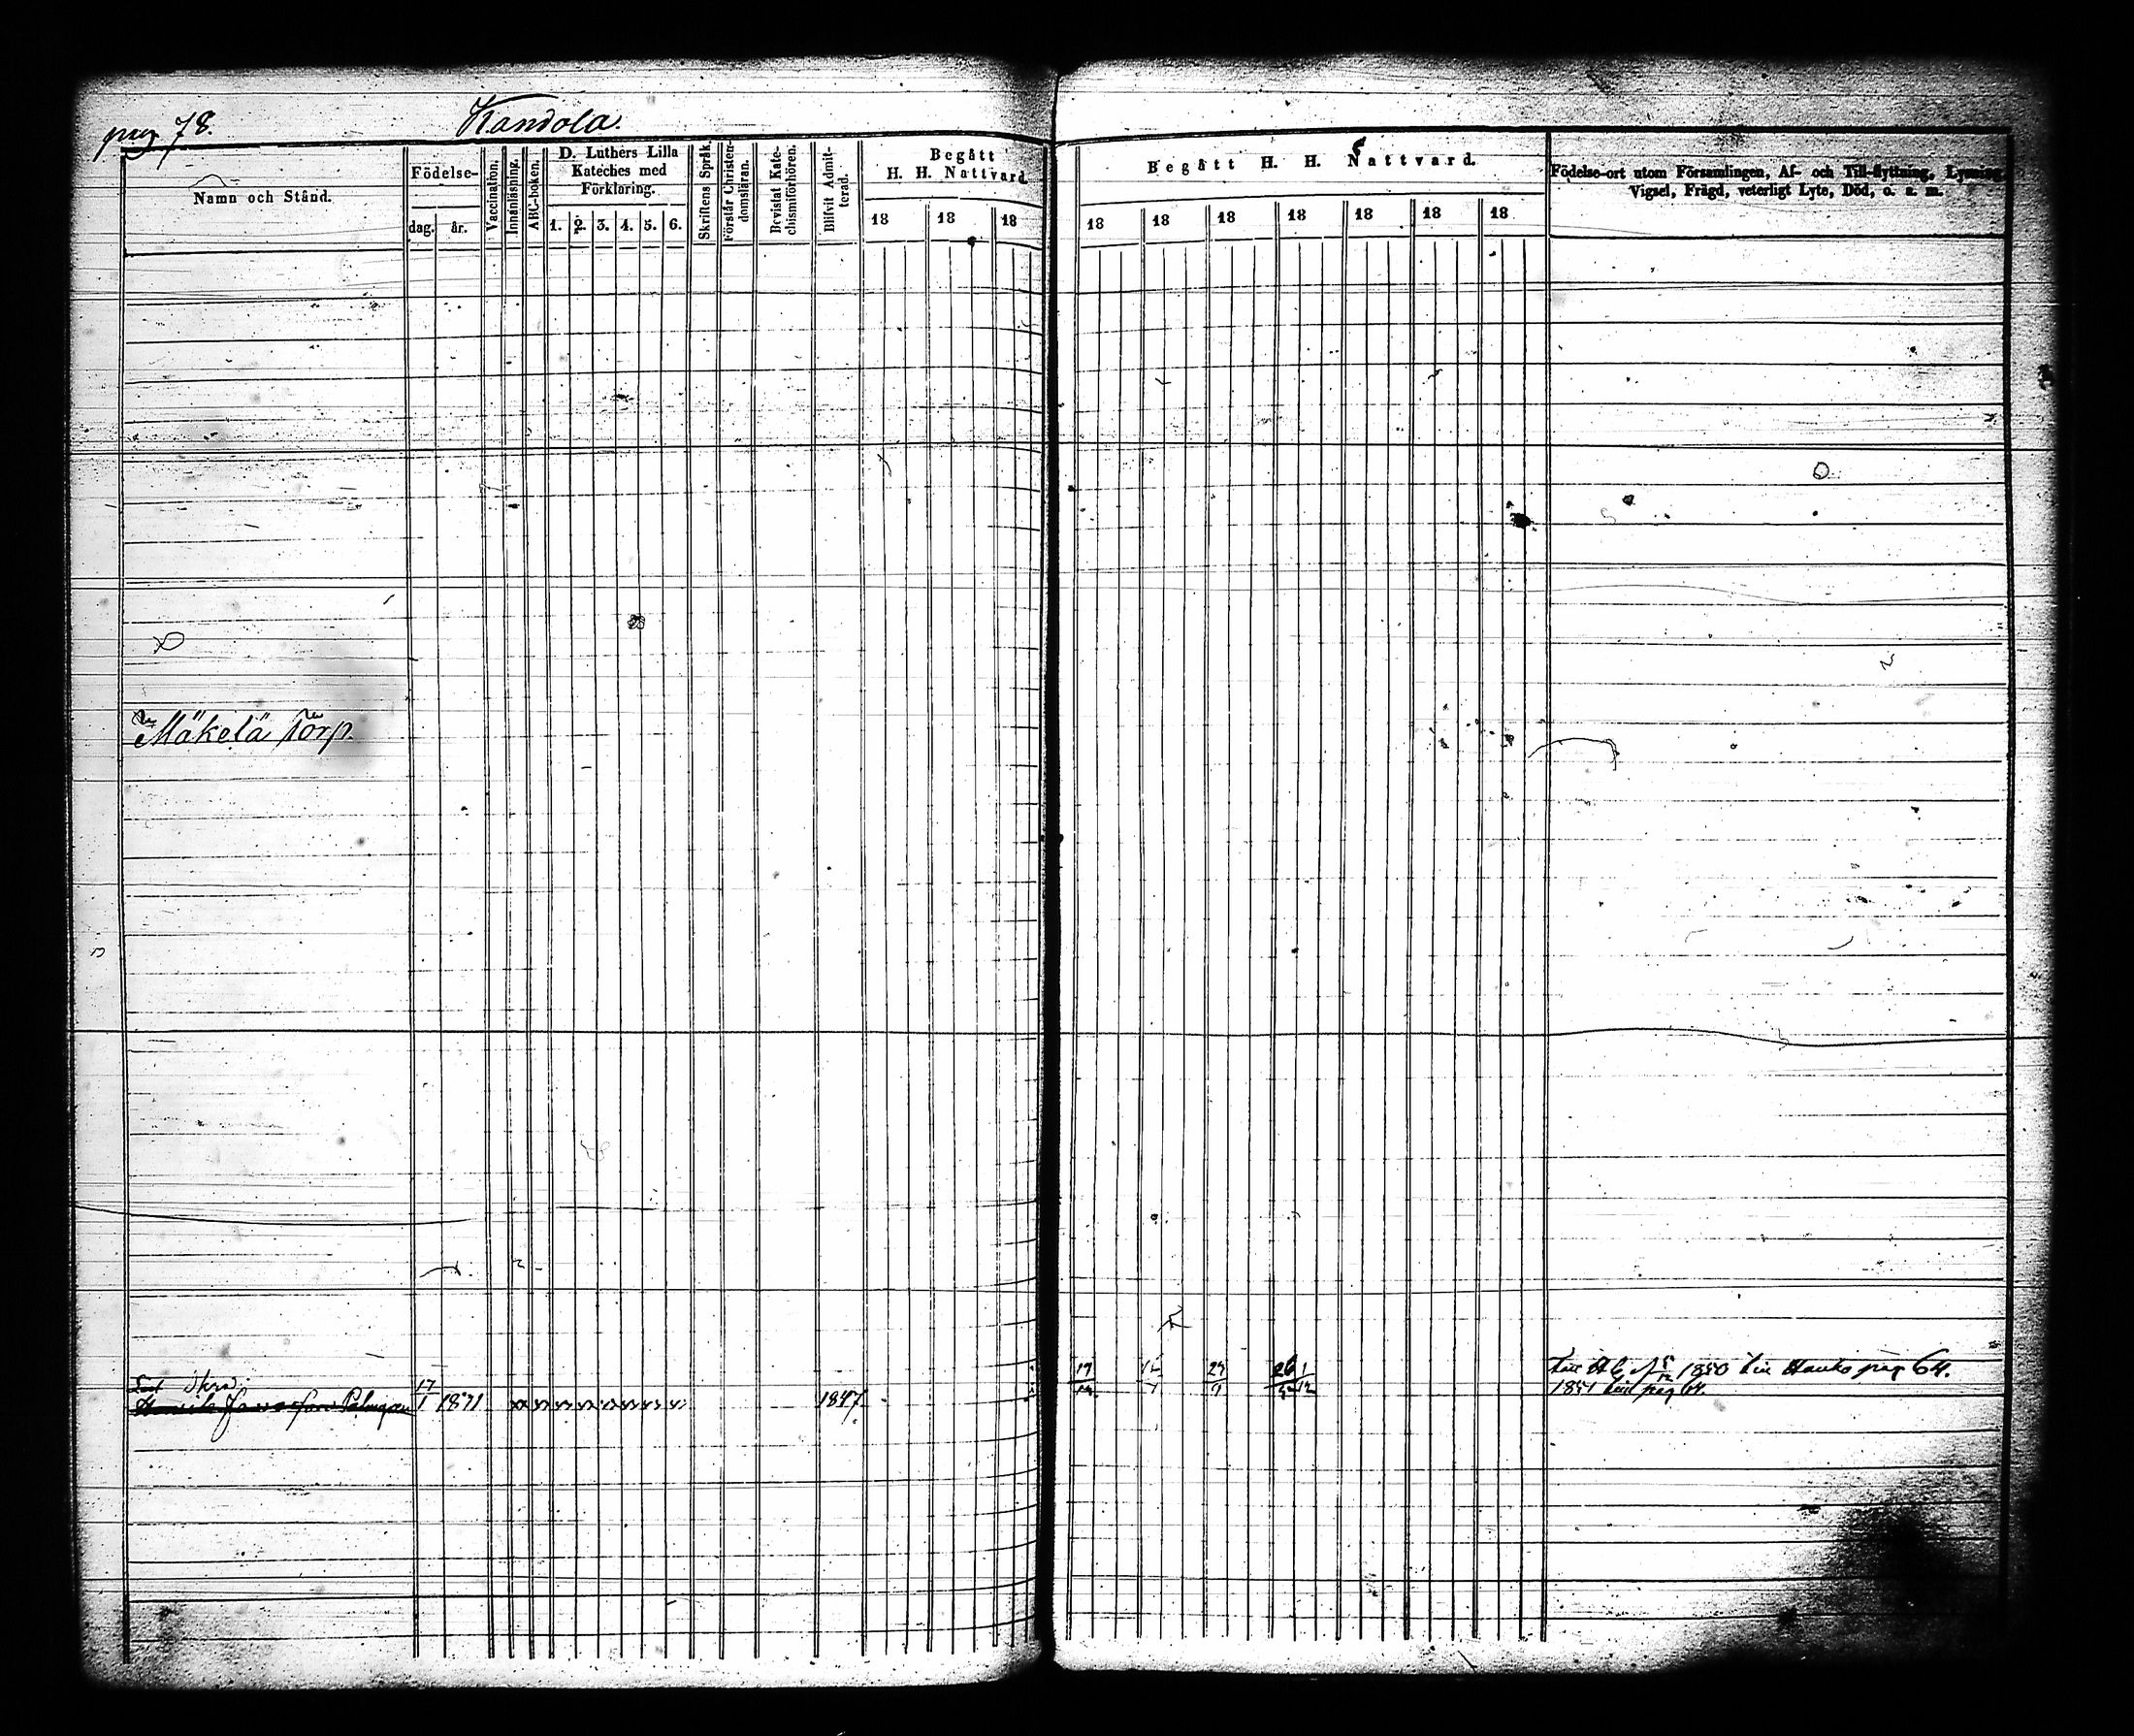 pag 78.
Kandola.
Namn och Stånd.
Födelse-
dag.
år.
Vaccination.
Innanläsning.
ABC-boken.
D. Luthers Lilla
Kateches med
Förklaring.
1. 2. 3. 4. 5. 6.
Skriftens Språk.
Förstår Christen-
domsläran.
Bevistat Kate-
chismiförhören.
Blifvit Admit-
terad.
Begått
H. H. Nattvard
18 18 18
Begått H. H. Nattvard.
18 18 18 18 18 18 18
Födelse-ort utom Församlingen, Af- och Till-flyttning, Lysning,
Vigsel, Frägd, veterligt Lyte, Död, o. s. m.
Mäkelä Torp.
17
1847
17 27 26 1
1850 Hauko pag 64.
1851 pag 64.